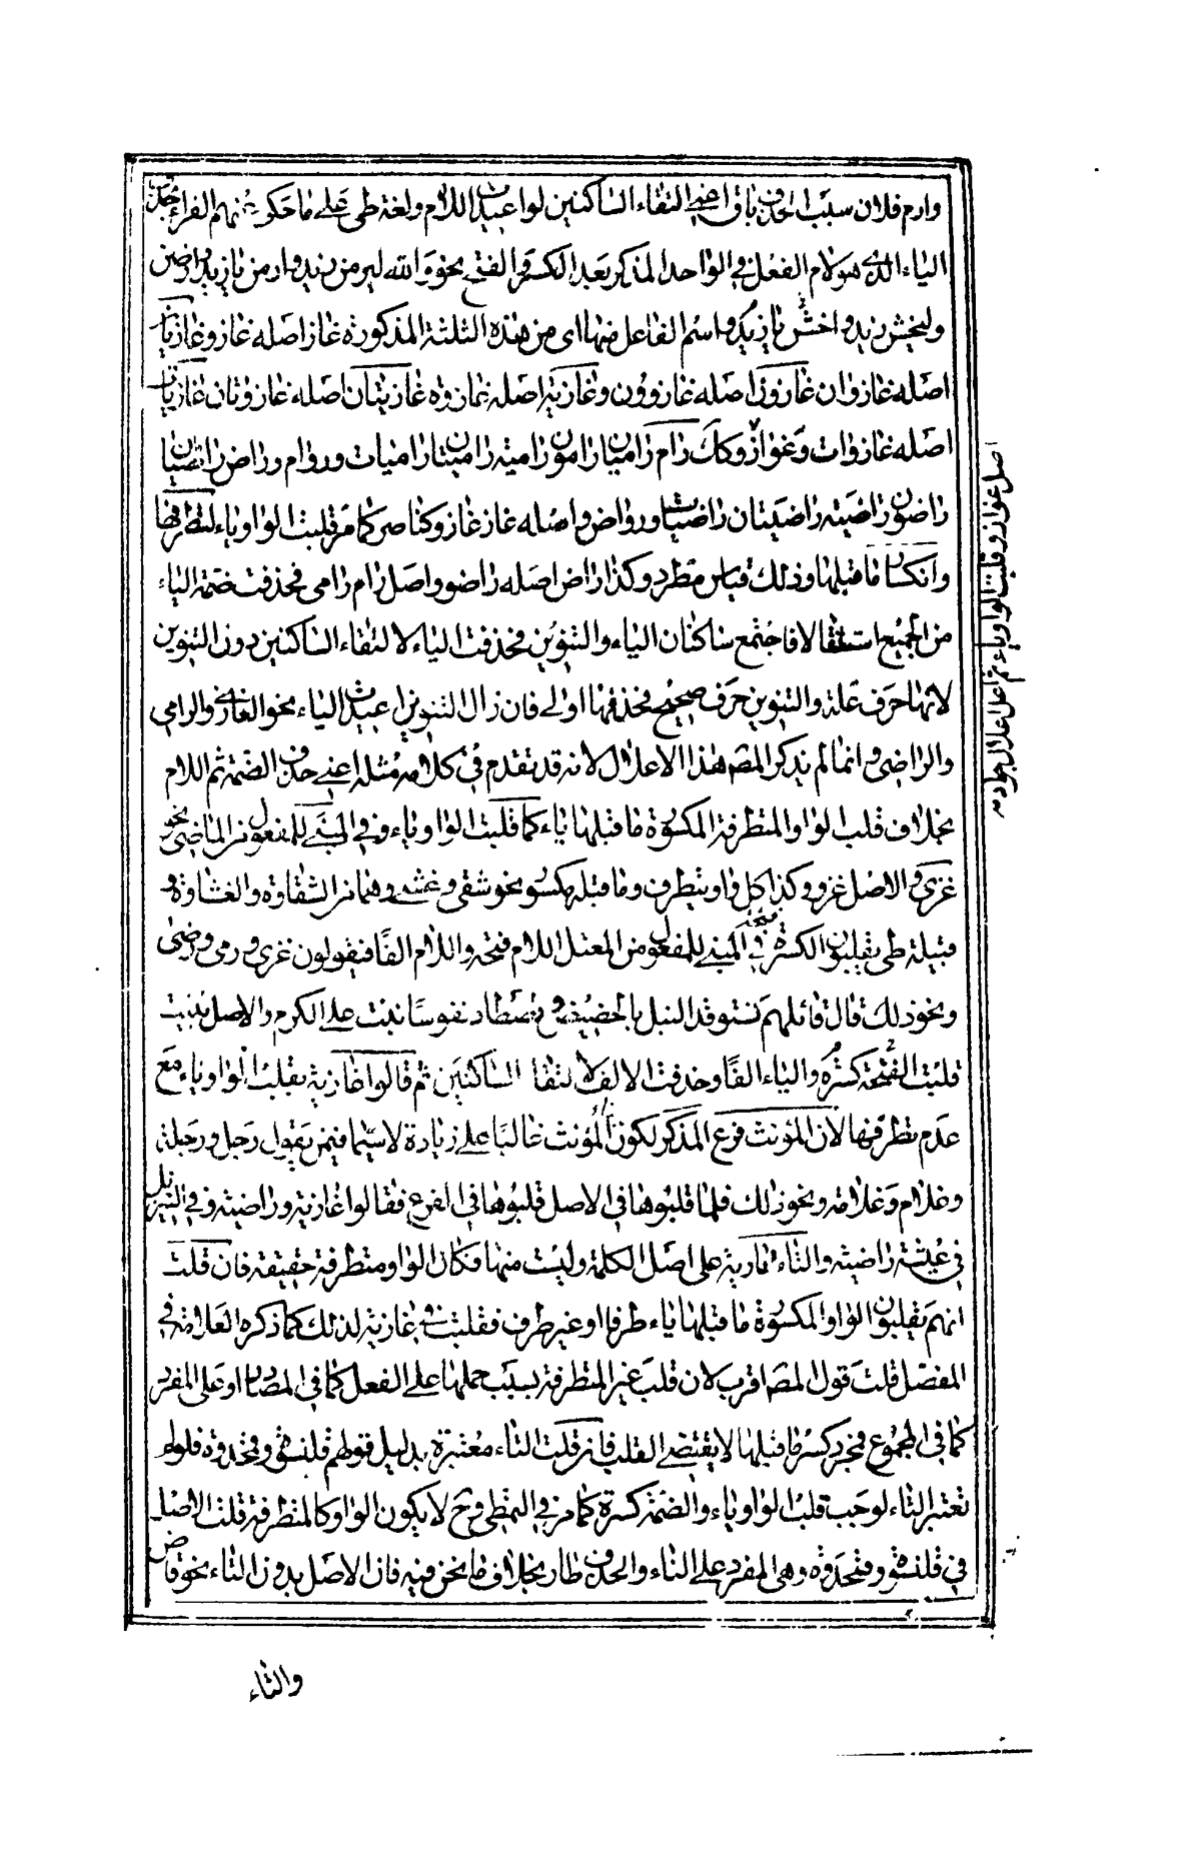 وارم فلان سبب الحذف باق اعنى التقاء الساكنين لو اعيدت اللام ولغة طى على ما حكى عنهم الفراء حذف
الياء الذى هو لام الفعل فى الواحد المذكر بعد الكسر والفتح نحو والله ليرمن زيد وارمن يا زيد وليرضين
وليخش زيد واخش يا زيد واسم الفاعل منها اى من هذه الثلثة المذكورة غاز اصله غازو غازيان
اصله غازوان غازون اصله غازوون وغازية اصله غازوة غازيتان اصله غازوتان غازيات
اصله غازوات وغواز وكذلك رام راميان رامون رامية راميتان راميات وروام وراض راضيان
راضون راضية راضيتان راضيات ورواض واصله غاز غازو كناصر كما مر قلبت الواو ياء لتطرفها
وانكسار ما قبلها وذلك قياس مطرد وكذا راض اصله راضو واصل رام رامى فحذفت ضمة الياء
من الجميع استثقالا فاجتمع ساكنان الياء والتنوين فحذفت الياء لالتقاء الساكنين دون التنوين
لانها حرف علة والتنوين حرف صحيح فحذفها اولى فان زال التنوين اعيدت الياء نحو الغازى والرامى
والراضى وانما لم يذكر المصـ هذا الاعلال لانه قد تقدم فى كلامه مثله اعنى حذف الضمة ثم اللام
بخلاف قلب الواو المتطرفة المكسورة ما قبلها ياء كما قلبت الواو ياء فى المبنى للمفعول من الماضى نحو
غزى والاصل غزو وكذا كل واو يتطرف وما قبله مكسور نحو شقى وغشى وهما من الشقاوة والغشاوة و
قبيلة طى يقلبون الكسرة فى المبنى للمفعول من المعتل اللام فتحة واللام الفا فيقولون غزى ورمى ورضى
ونحو ذلك قال قائلهم نستوقد النبل بالحضيض ونصطاد نفوسا بنت على الكرم والاصل بنيت
قلبت الفتحة كسرة والياء الفا وحذفت الالف لالتقاء الساكنين ثم قالوا غازية بقلب الواو ياء مع
عدم تطرفها لان المؤنث فرع المذكر لكون المؤنث غالبا على زيادة لاسيما فيمن يقول رجل ورجلة
وغلام وغلامة ونحو ذلك فلما قلبوها فى الاصل قلبوها فى الفرع فقالوا غازية وراضية وفى التنزيل
فى عيشة راضية والتاء طارية على اصل الكلمة وليست منها فكان الواو متطرفة حقيقة فان قلت
انهم يقلبون الواو المكسورة ما قبلها ياء طرفا او غير طرف فقلبت فى غازية لذلك كما ذكره العلامة فى
المفصل قلت قول المصـ اقرب لان قلب غير المتطرفة بسبب حملها على الفعل كما فى المصادر او على المفرد
كما فى الجموع فمجرد كسر ما قبلها لا يقتضى القلب فان قلت التاء معتبرة بدليل قولهم قلنسوة وقمحدوة فلو لم
تعتبر التاء لوجب قلب الواو ياء والضمة كسرة كما مر فى التمطى وح لا يكون الواو كالمتطرفة قلت الاصل
فى قلنسوة وقمحدوة وهى المفرد على التاء والحذف طار بخلاف ما نحن فيه فان الاصل بدون التاء نحو قاض
والتاء
اصل غواز غوازو قلبت الواو ياء ثم اعل اعلال جوار منه